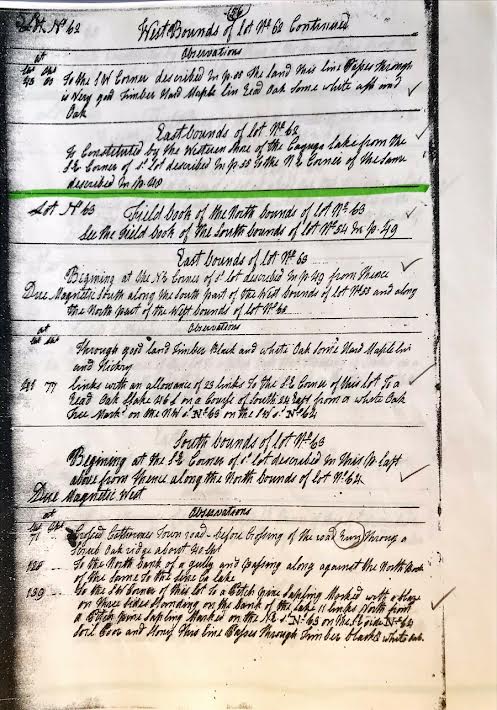 Lot Nº 62
West Bounds of lot Nº 62 Continued
Observations
at
To the SW Corner described in p. the land this line Passes through
is Very good Timber Hard Maple Lin Read Oak Some white ash and
Oak
East Bounds of lot Nº 62
Is Constituted by the Western Shore of the Cayuga Lake from the
SE Corner of sd lot described in p. 55 to the NE Corner of the Same
described in p.
Lot Nº 63
Field Book of the North Bounds of lot Nº 63
See the Field Book of the South Bounds of lot Nº 54 in p. 49
East Bounds of lot Nº 63
Begining at the NE Corner of sd lot described in p. 49 from Thence
Due Magnetic South along the South part of the West Bounds of lot Nº 55 and along
the North part of the West Bounds of lot Nº
at
Observations
Through good land Timber Black and white Oak Some Hard Maple Lin
and Hickory
77 Links with an allowance of 23 links To the SE Corner of this lot To a
Read Oak Stake on a Course of South East from a white Oak
Tree Markd on the NW sd Nº 63 on the SW sd Nº 64
South Bounds of lot Nº 63
Begining at the SE Corner of sd lot described in This p. last
above from Thence along the North Bounds of lot Nº 64
Due Magnetic West
at
Observations
71 Crossed Catherines Town road before Crossing of the road run Through a
Oak ridge about
120 To the North Bank of a gully and Passing along against the North Bank
of the Same To the lake
139 To the SW Corner of this Lot To a Pitch pine Sapling Marked with a blaze
on Three Sides Standing on the Bank of the Lake 11 links North from
a Pitch pine Sapling Marked on the Nº 63 on the Side Nº 64
Soil Poor and Stoney This line Passes Through Timber black & white Oak